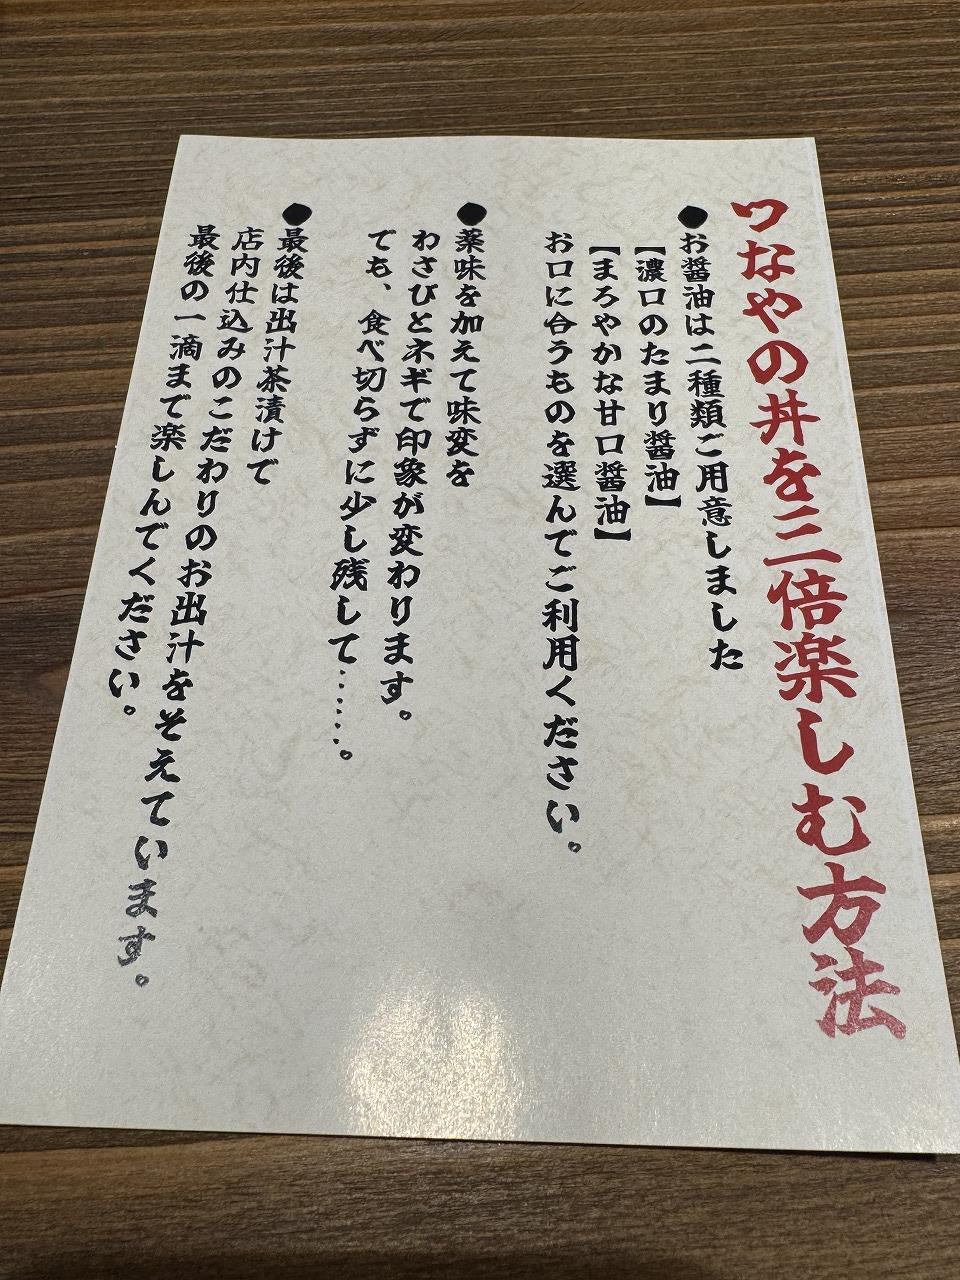 つなやの丼を三倍楽しむ方法
●お醤油は二種類ご用意しました
【濃口のたまり醤油】
【まろやかな甘口醤油】
お口に合うものを選んでご利用ください。
●薬味を加えて味変を
わさびとネギで印象が変わります。
でも、食べ切らずに少し残して……。
●最後は出汁茶漬けで
店内仕込みのこだわりのお出汁をそえています。
最後の一滴まで楽しんでください。